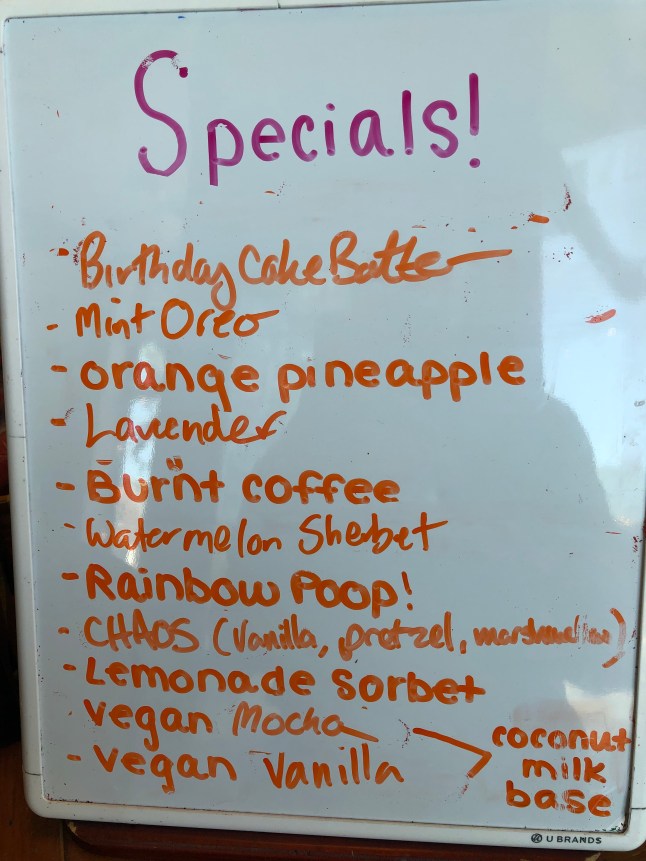 Specials!
- Birthday Cake Batter
- Mint Oreo
- orange pineapple
- Lavender
- Burnt coffee
- Watermelon Sherbet
- Rainbow Poop!
- CHAOS (Vanilla, pretzel, marshmallow)
- Lemonade Sorbet
vegan Mocha
- vegan Vanilla
coconut
milk
base
U BRANDS